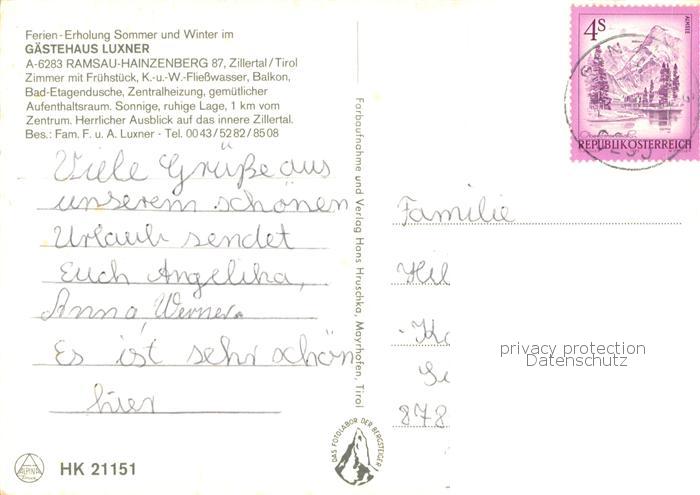 Ferien-Erholung Sommer und Winter im
GÄSTEHAUS LUXNER
A-6283 RAMSAU-HAINZENBERG 87, Zillertal/Tirol
Zimmer mit Frühstück, K.-u.-W.-Fließwasser, Balkon,
Bad-Etagendusche, Zentralheizung, gemütlicher
Aufenthaltsraum. Sonnige, ruhige Lage, 1 km vom
Zentrum. Herrlicher Ausblick auf das innere Zillertal.
Bes.: Fam. F. u. A. Luxner - Tel. 0043/5282/8508
Viele Grüße aus
unserem schönen
Urlaub sendet
Euch Angelika,
Anna, Werner.
Es ist sehr schön
hier
ALPINA
HK 21151
Farbaufnahme und Verlag Hans Hruschka, Mayrhofen, Tirol
DAS FOTOLABOR DER BERGSTEIGER
4S
ALMSEE
REPUBLIK ÖSTERREICH
Familie
Hil
Ke
Se
878
privacy protection
Datenschutz